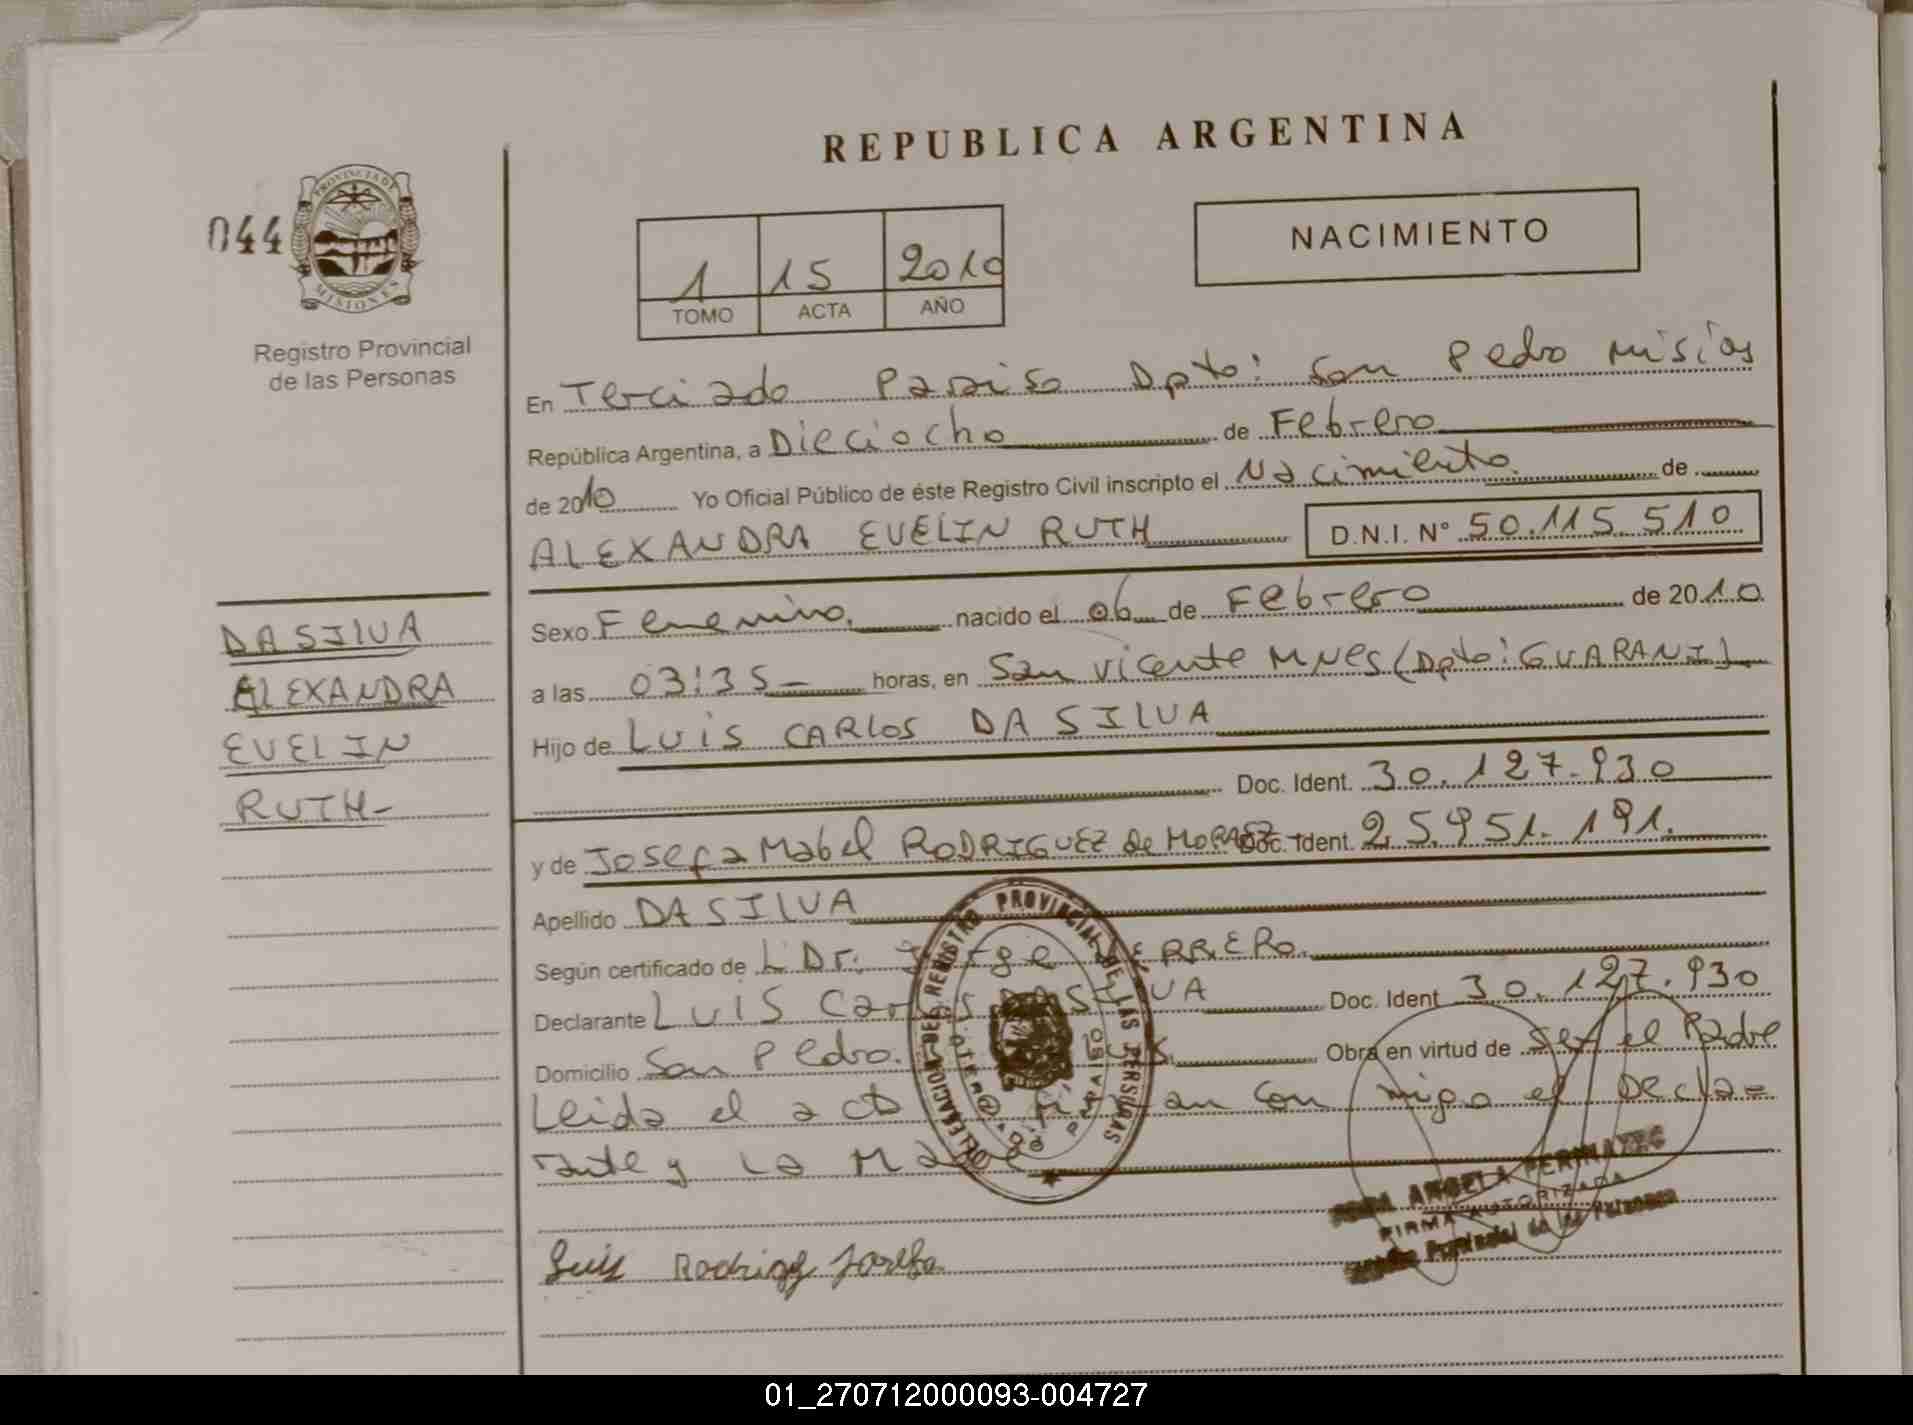 REPUBLICA ARGENTINA
044
PROVINCIA DE MISIONES
Registro Provincial
de las Personas
NACIMIENTO
1 15 2010
TOMO ACTA AÑO
En Terciado Paraiso Dpto: San Pedro Misiones
República Argentina, a Dieciocho de Febrero
de 2010 Yo Oficial Público de éste Registro Civil inscripto el Nacimiento de
ALEXANDRA EVELIN RUTH D.N.I. N° 50.115.510
DA SILVA
ALEXANDRA
EVELIN
RUTH-
Sexo Femenino. nacido el 06 de Febrero de 2010
a las 03:35- horas, en San Vicente MNES (Dpto: GUARANI)
Hijo de LUIS CARLOS DA SILVA
Doc. Ident. 30.127.930
y de Josefa Mabel RODRIGUEZ de MORAEZ Doc. Ident. 25.951.191.
Apellido DA SILVA
Según certificado de L Dr. Jorge HERRERO.
Declarante LUIS Carlos DA SILVA Doc. Ident 30.127.930
Domicilio San Pedro. Obra en virtud de ser el Padre
Leida el acta firman con migo el Decla=
rante y La Madre
DELEGACION DEL REGISTRO PROVINCIAL DE LAS PERSONAS
ANGELA
FIRMA AUTORIZADA
Provincial de las Personas
Luis Rodrigz Josefa
01_270712000093-004727